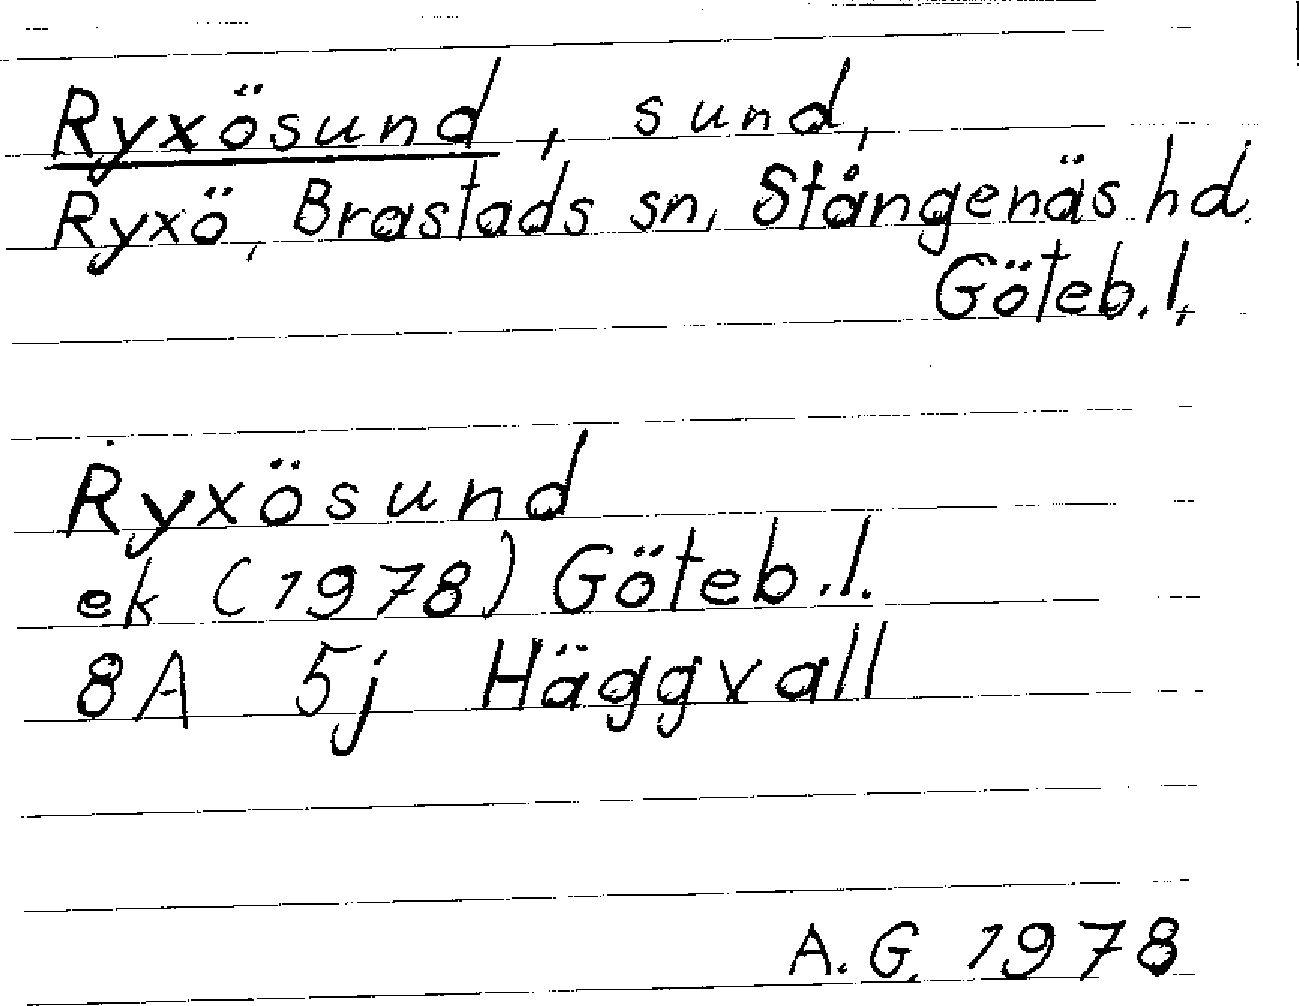 Ryxösund, sund,
Ryxö, Brastads sn, Stångenäs hd.
Göteb. l.
Ryxösund
ek (1978) Göteb. l.
8A 5j Häggvall
A. G. 1978